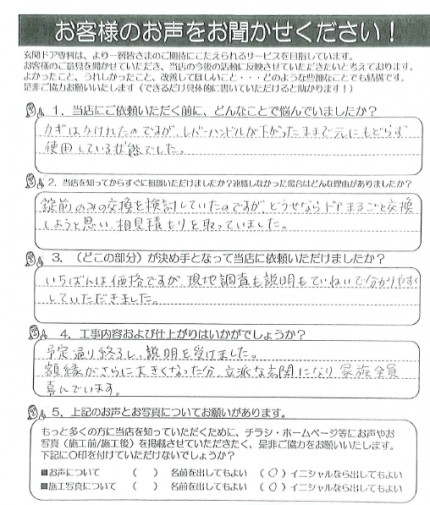 お客様のお声をお聞かせください!
玄関ドア専科は、より一層皆さまのご期待にこたえられるサービスを目指しています。
お客様のご意見を聞かせていただき、当店の今後の活動に反映させていただきたいと考えております。
よかったこと、うれしかったこと、改善してほしいこと・・・どのような些細なことでも結構です。
是非ご協力お願いいたします(できるだけ具体的に書いていただけると助かります!)
1.当店にご依頼いただく前に、どんなことで悩んでいましたか?
カギはかけれたのですが、レバーハンドルが下がったままで元にもどらず
使用している状態でした。
2.当店を知ってからすぐに相談いただけましたか?連絡しなかった場合はどんな理由がありましたか?
錠前のみの交換を検討していたのですが、どうせならドアまるごと交換
しようと思い、相見積りを取っていました。
3.(どこの部分)が決め手となって当店に依頼いただけましたか?
いちばんは価格ですが、現地調査も説明もていねいで分かりやすく
していただきました。
4.工事内容および仕上がりはいかがでしょうか?
予定通り終了し、説明を受けました。
額縁がさらに大きくなった分、立派な玄関になり家族全員
喜んでいます。
5.上記のお声とお写真についてお願いがあります。
もっと多くの方に当店を知っていただくために、チラシ・ホームページ等にお声やお
写真(施工前/施工後)を掲載させていただきたく、是非ご協力をお願いいたします。
下記に○印を付けていただけないでしょうか?
■お声について ( ) 名前を出してもよい (○) イニシャルなら出してもよい
■施工写真について ( ) 名前を出してもよい (○) イニシャルなら出してもよい